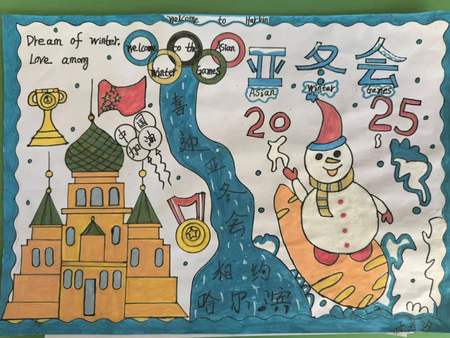 Welcome to Harbin
Dream of winter,
Love among
Welcome to the Asian
Winter Games
亚冬会
Asian Winter Games
2025
中国
加油
喜迎亚冬会
相约
哈尔滨